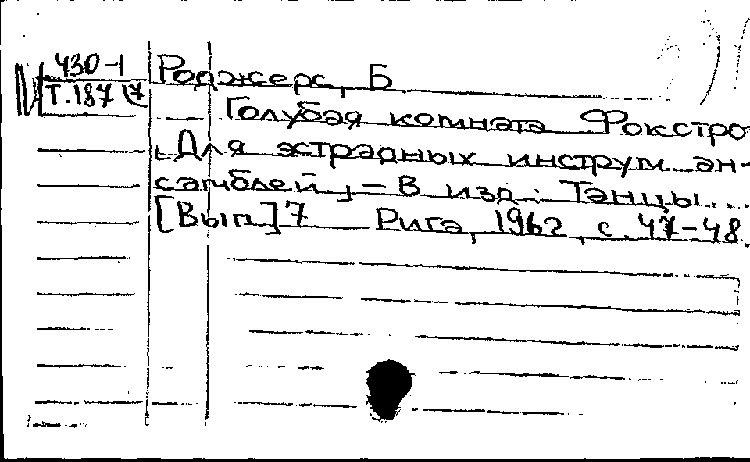 430-1
Т.187 (7
Роджерс, Б
Голубая комната Фокстро
[Для эстрадных инструм. ан-
самблей] – В изд.: Танцы...
[Вып.] 7 Рига, 1962, с. 47-48